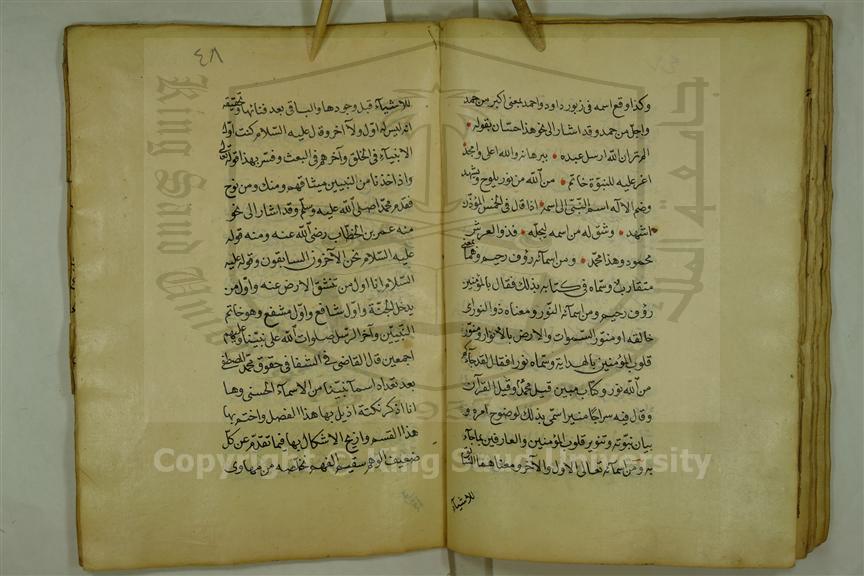 وكذا وقع اسمه فى زبور داود واحمد بمعنى اكبر من حمد
واجل من حمد وقد اشار الى نحو هذا حسّان بقوله
الم تر ان الله ارسل عبده ببرهانه والله اعلى وامجد
اغر عليه للنبوّة خاتم من الله من نور يلوح ويشهد
وضم الاله اسم النبى الى اسمه اذا قال فى الخمس المؤذن
اشهد وشق له من اسمه ليجله فذو العرش
محمود وهذا محمد ومن اسمائه رؤف رحيم وهما بمعنى
متقارب وسماه فى كتابه بذلك فقال بالمؤمنين
رؤف رحيم ومن اسمائه النور ومعناه ذو النور اى
خالقه او منوّر السموات والارض بالانوار ومنوّر
قلوب المؤمنين بالهداية وسماه نورا فقال قد جاءكم
من الله نور وكتاب مبين قيل محمد وقيل القرآن
وقال فيه سراجا منيرا سمى بذلك لوضوح امره و
بيان نبوّته وتنوير قلوب المؤمنين والعارفين بما جاء
به ومن اسمائه تعالى الاول والآخر ومعناهما السابق
للاشياء
٤٨
للاشياء قبل وجودها والباقى بعد فنائها وتحقيقه
انه ليس له اوّل ولا آخر وقال عليه السلام كنت اوّل
الانبياء فى الخلق وآخرهم فى البعث وفسر بهذا قوله تعالى
واذ اخذنا من النبيين ميثاقهم ومنك ومن نوح
فقدم محمدا صلى الله عليه وسلم وقد اشار الى نحو
منه عمر بن الخطاب رضى الله عنه ومنه قوله
عليه السلام نحن الآخرون السابقون وقوله عليه
السلام انا اول من تنشق الارض عنه واول من
يدخل الجنة واول شافع واول مشفع وهو خاتم
النبيين وآخر الرسل صلوات الله على نبينا وعليهم
اجمعين قال القاضى فى الشفا فى حقوق محمد المصطفى
بعد تعداد اسماء نبينا من الاسماء الحسنى وها
انا اذكر نكتة اذيل بها هذا الفصل واختم بها
هذا القسم وازيح الاشكال بها فيما تقدم عن كل
ضعيف الوهم سقيم الفهم تخلصه من مهاوى
جامعة الملك
King Saud Univ
Copyright © King Saud University